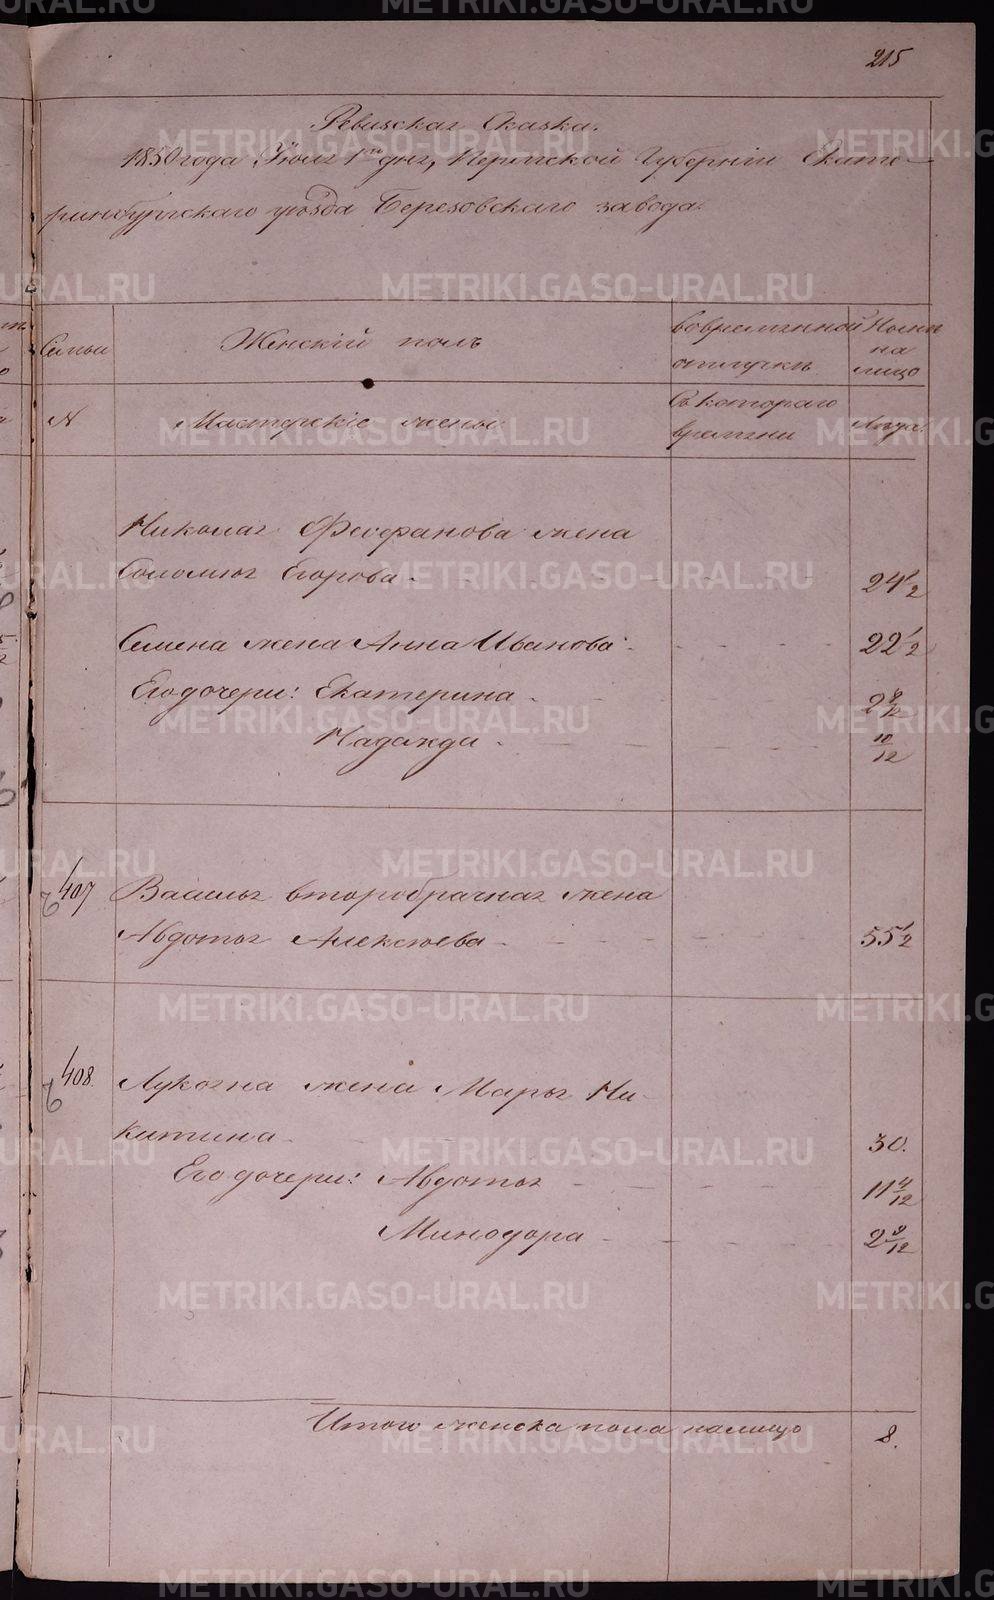 215
Ревизская Сказка.
1850 года Июля 1го дня, Пермской Губерніи Екате-
ринбургскаго уѣзда Березовскаго завода.
Семьи
Женскій полъ
Во временной
отлучкѣ
Ныне
на
лицо
N
Мастерскіе жены
Съ котораго
времени
Лѣта
Николая Феофанова жена
Соломія Егорова - 24 1/2
Семена жена Анна Иванова - 22 1/2
Его дочери: Екатерина - 2 8/12
Надежда - 10/12
407 Василья второбрачная жена
Авдотья Алексѣева - 55 1/2
408 Лукояна жена Марья Ни-
китина - 30.
Его дочери: Авдотья - 11 4/12
Минодора - 2 9/12
Итого женска пола налицо 8.
METRIKI.GASO-URAL.RU